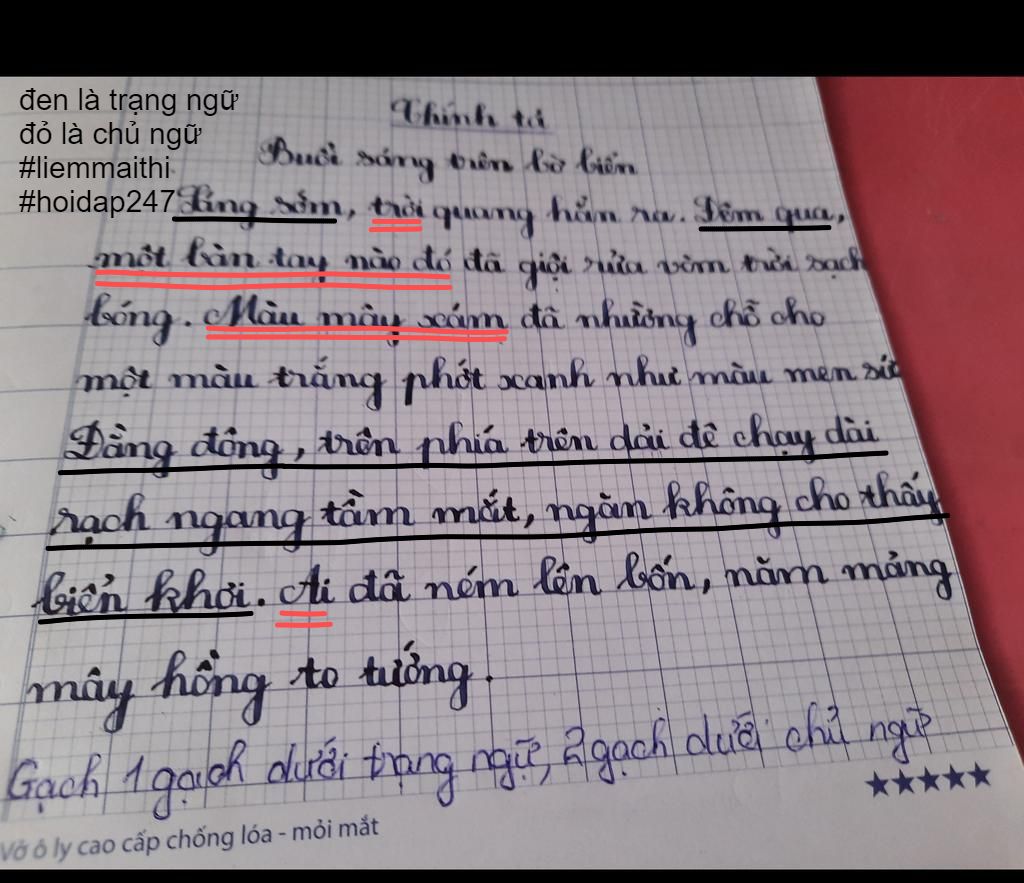 đen là trạng ngữ
đỏ là chủ ngữ
#liemmaithi
#hoidap247
Chính tả
Buổi sáng trên bờ biển
Sáng sớm, trời quang hẳn ra. Đêm qua,
một bàn tay nào đó đã giội rửa vòm trời sạch
bóng. Màu mây xám đã nhường chỗ cho
một màu trắng phớt xanh như màu men sứ
Đằng đông, trên phía trên dải đê chạy dài
rạch ngang tầm mắt, ngăn không cho thấy
biển khơi. Ai đã ném lên bốn, năm mảng
mây hồng to tướng.
Gạch 1 gạch dưới trạng ngữ, 2 gạch dưới chủ ngữ
★★★★★
Vở ô ly cao cấp chống lóa - mỏi mắt